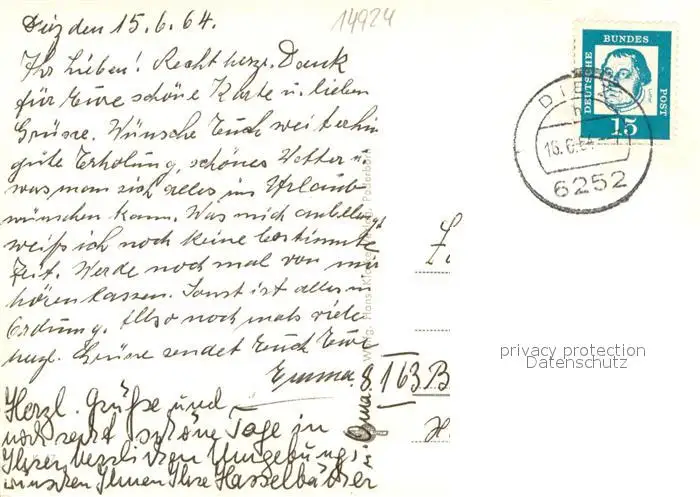 Diez den 15.6.64.
14924
Ihr Lieben! Recht herzl. Dank
für Eure schöne Karte u. lieben
Grüsse. Wünsche Euch weiterhin
gute Erholung, schönes Wetter u
was man sich alles im Urlaub
wünschen kann. Was mich anbelangt
weiß ich noch keine bestimmte
Zeit. Werde noch mal von mir
hören lassen. Sonst ist alles in
Ordnung. Also nochmals viele
herzl. Grüsse sendet Euch Eure
Emma
Herzl. Grüße und
noch recht schöne Tage in
Ihrer herrlichen Umgebung,
wünschen Ihnen Ihre Hasselbächer
Verlag Hans Paderborn
DEUTSCHE BUNDES POST
15
DIEZ
15.6.64
6252
163 B
privacy protection
Datenschutz